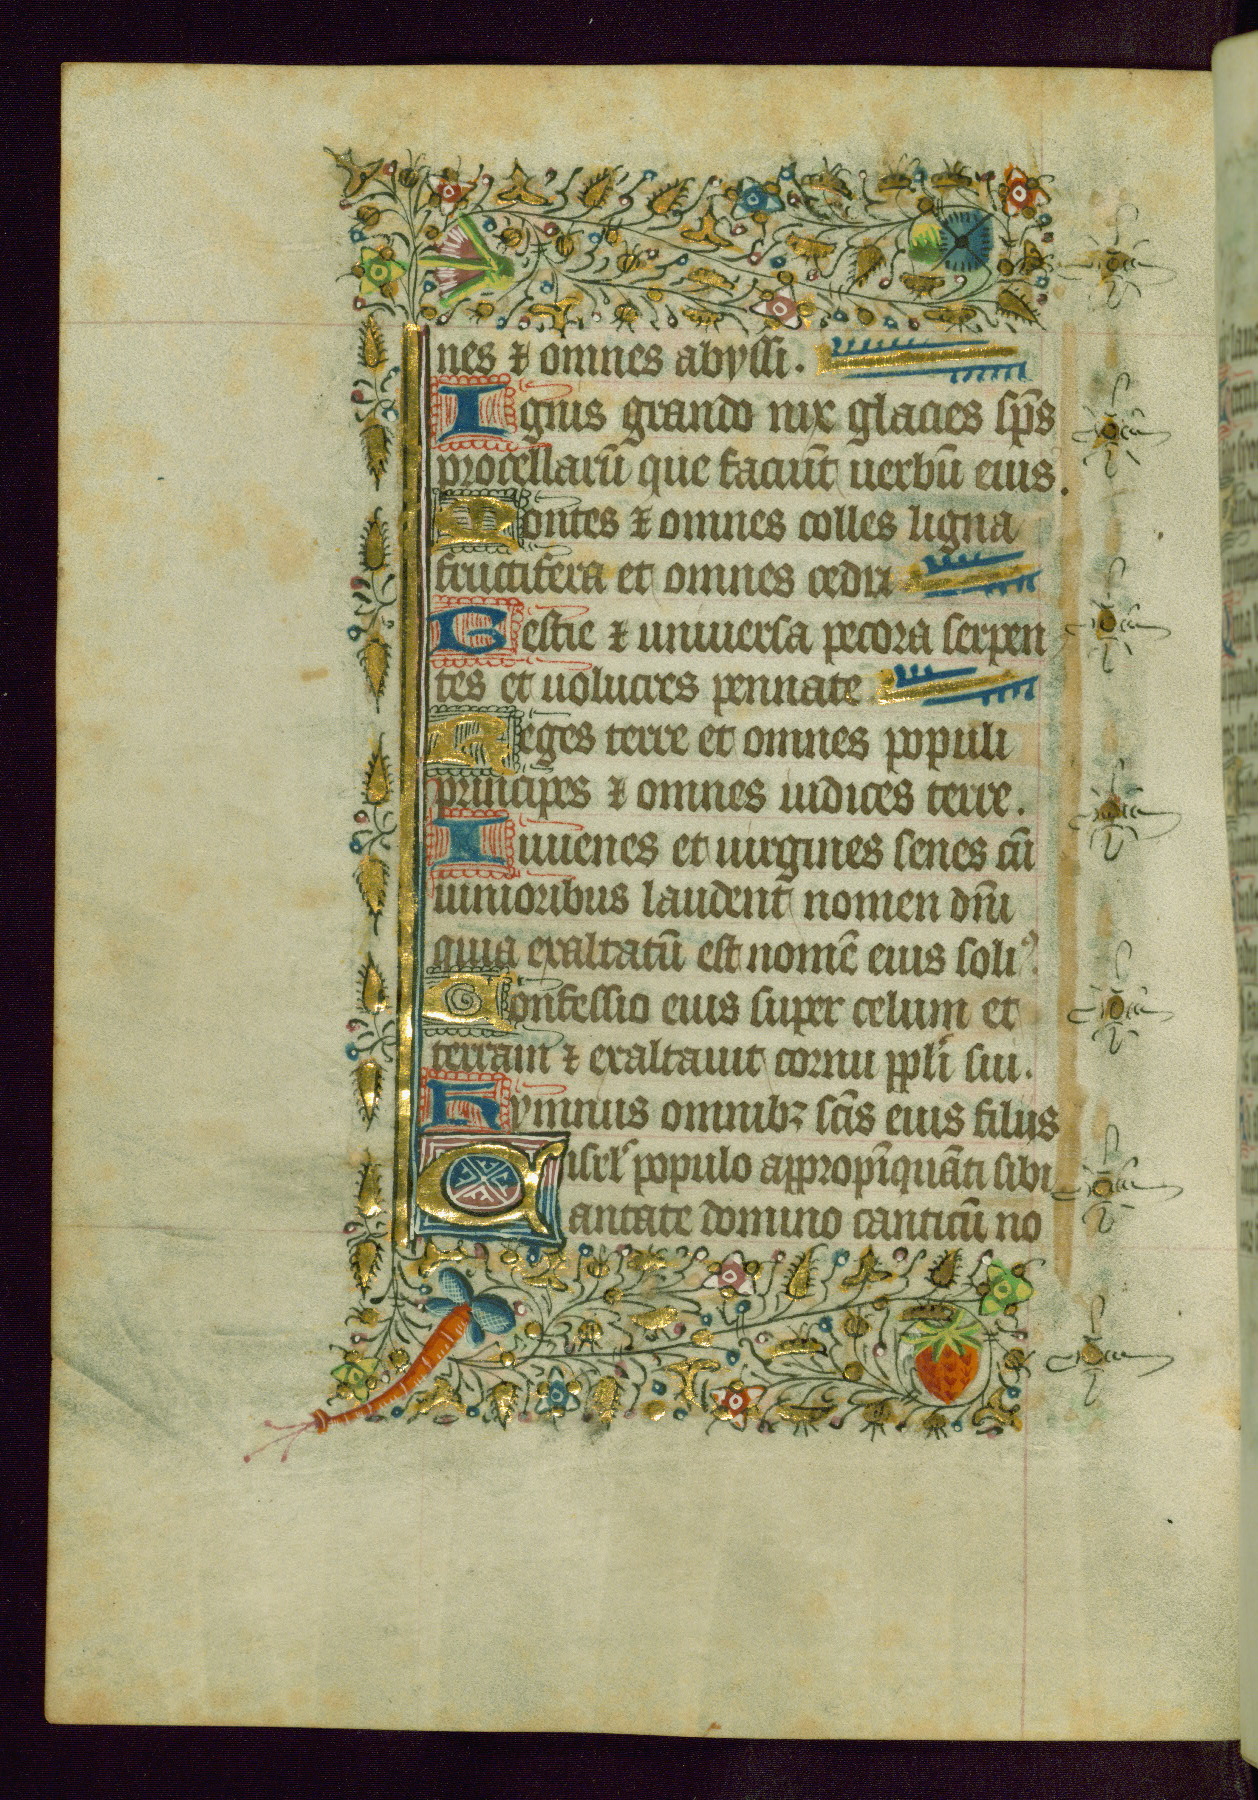 nes ⁊ omnes abyssi.
Ignis grando nix glacies sp̄s
procellarū que faciūt uerbū eius.
Montes ⁊ omnes colles ligna
fructifera et omnes cedri
Bestie ⁊ uniuersa pecora serpen
tes et uolucres pennate
Reges terre et omnes populi
principes ⁊ omnes iudices terre.
Iuuenes et uirgines senes cū
iunioribus laudent nomen dn̄i
quia exaltatū est nomē eius soliꝰ.
Confessio eius super celum et
terram ⁊ exaltauit cornu ppl̄i sui.
Hymnus omnibꝫ sc̄is eius filiis
isrl̄ populo appropīquāti sibi
Cantate domino canticū no